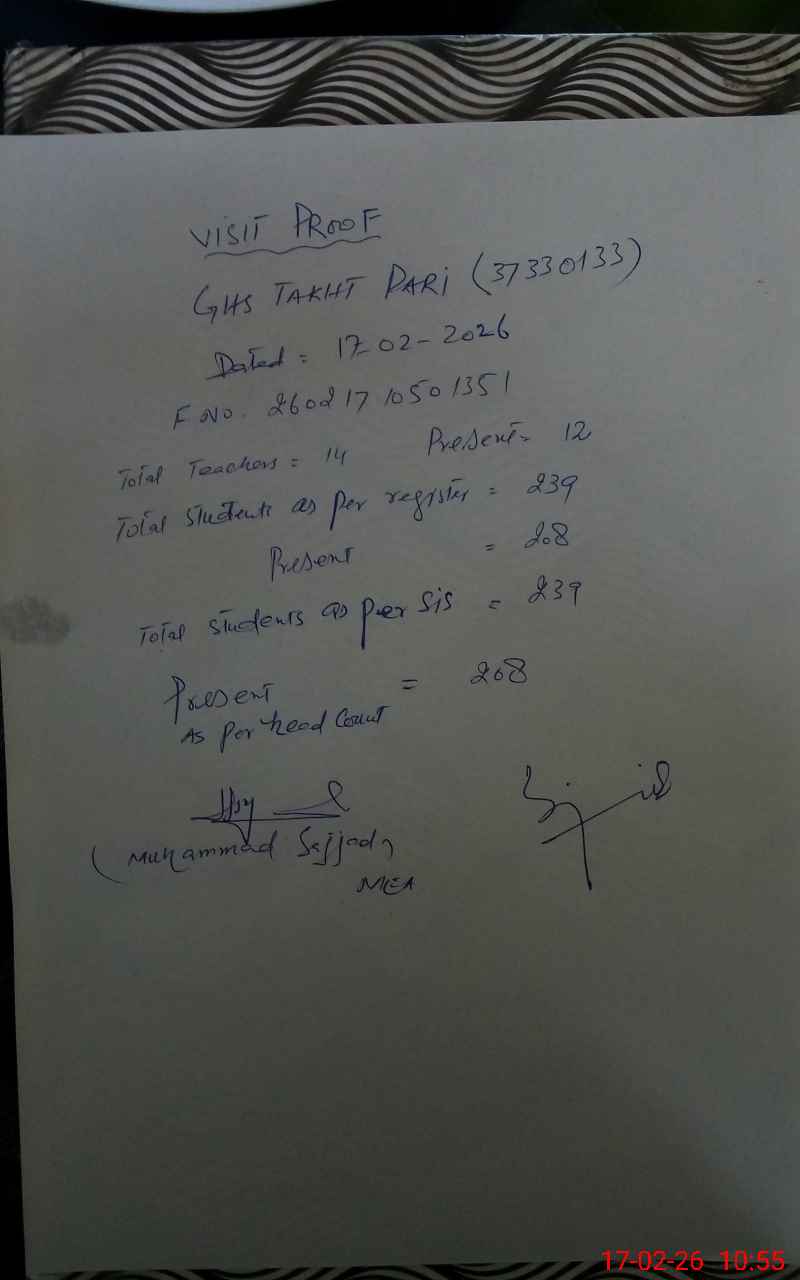 VISIT PROOF
GHS TAKHT PARI (37330133)
Dated = 17-02-2026
F. No. 260217 10501351
Total Teachers = 14 Present = 12
Total Students as per register = 239
Present = 208
Total Students as per SiS = 239
Present = 208
As per head Count
(Muhammad Sajjad)
MEA
17-02-26 10:55